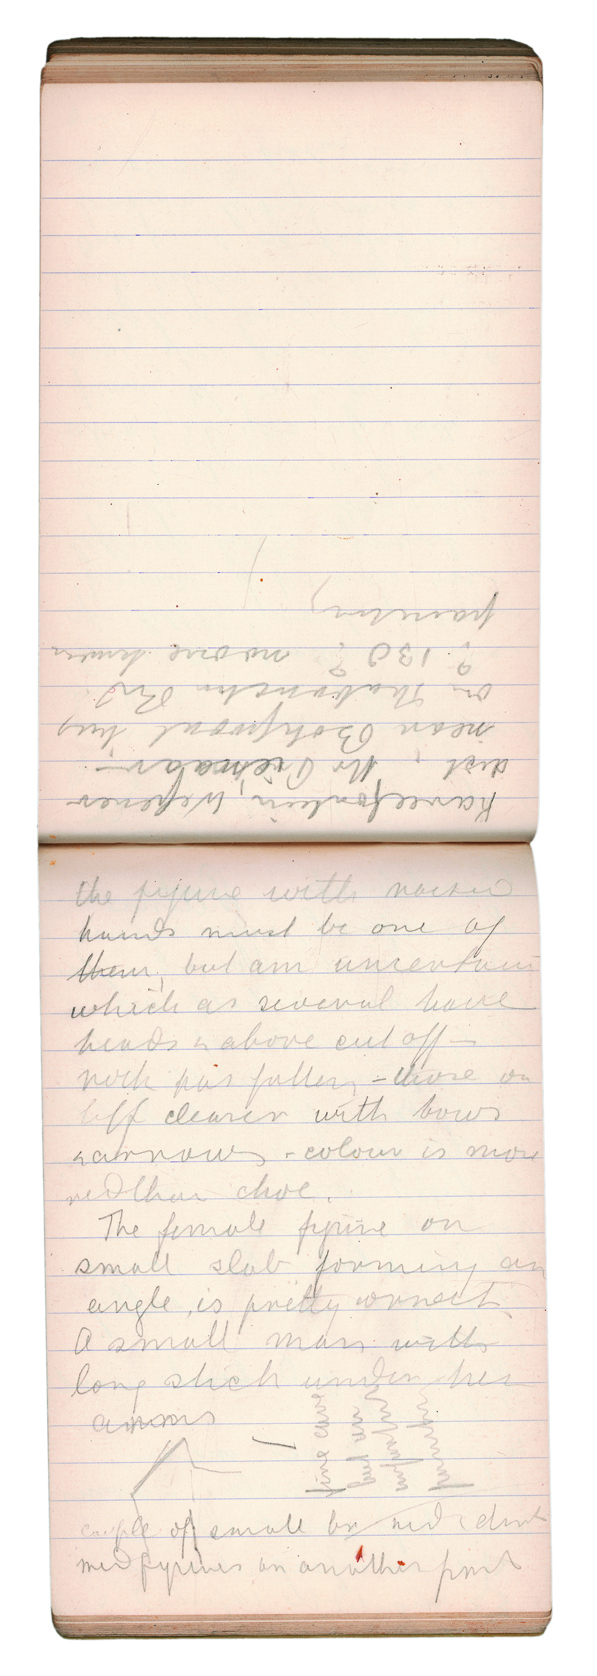 Kareefontein, Wepener
dist, Mr
near
on Thabanchu Rd.
? 130? no one knows
painting
the figure with raised
hands must be one of
them, but am uncertain
which as several have
heads & above cut off –
rock has fallen, – those on
left clearer with bows
& arrows, – colour is more
red than choc.
The female figure on
small slab forming an
angle, is pretty correct
A small man with
long stick under his
arms
fine cave
but un
couple of small br red & dark
red figures on another part